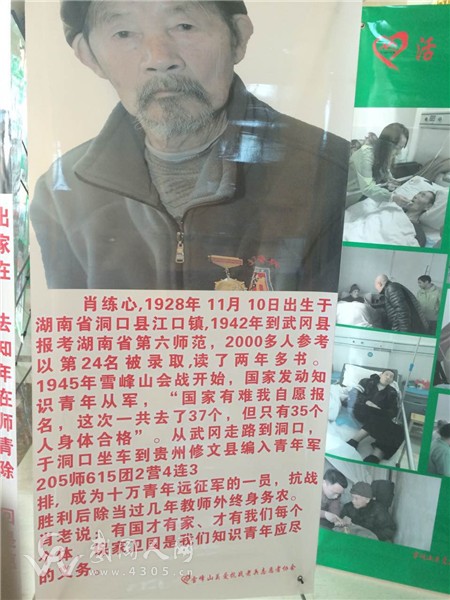 肖练心,1928年 11月 10日出生于
湖南省洞口县江口镇,1942年到武冈县
报考湖南省第六师范，2000多人参考
以第24名被录取,读了两年多书。
1945年雪峰山会战开始，国家发动知
识青年从军，“国家有难我自愿报
名，这次一共去了37个，但只有35个
人身体合格”。从武冈走路到洞口，
于洞口坐车到贵州修文县编入青年军
205师615团2营4连3
排，成为十万青年远征军的一员，抗战
胜利后除当过几年教师外终身务农。
老说：有国才有家、才有我们每个
保家卫国是我们知识青年应尽
的义务
雪峰山关爱抗战老兵志愿者协会
出家在
去知年在师青除
活
武冈人网
www.4305.cn